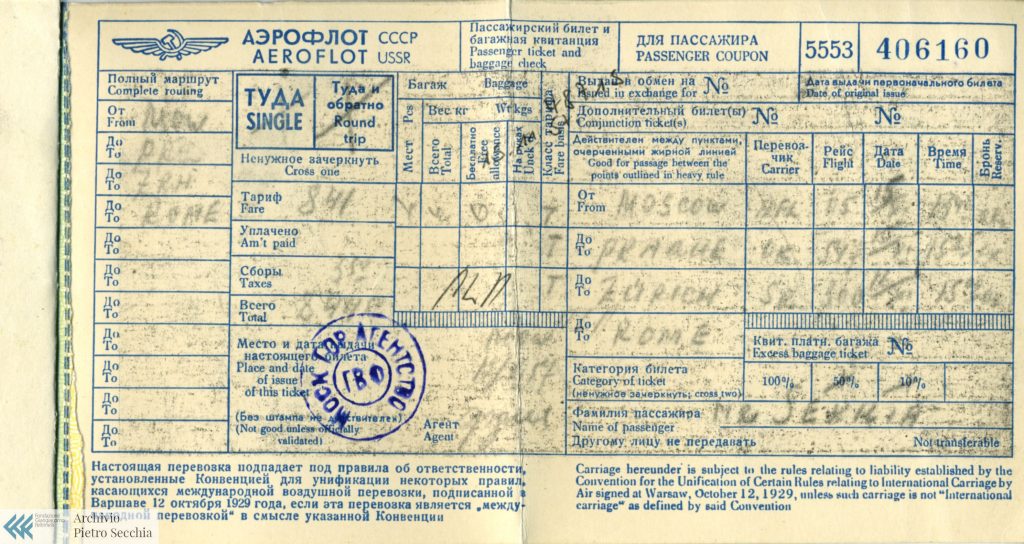 АЭРОФЛОТ СССР
AEROFLOT USSR
Пассажирский билет и
багажная квитанция
Passenger ticket and
baggage check
ДЛЯ ПАССАЖИРА
PASSENGER COUPON
5553
406160
Полный маршрут
Complete routing
От
From
До
To
До
To
ZRH
До
To
ROME
До
To
До
To
До
To
До
To
До
To
До
To
До
To
ТУДА
SINGLE
Туда и
обратно
Round
trip
Ненужное зачеркнуть
Cross one
Тариф
Fare
841
Уплачено
Am't paid
Сборы
Taxes
Всего
Total
Место и дата выдачи
настоящего билета
Place and date
of issue
of this ticket
(Без штампа не действителен)
(Not good unless officially
validated)
Агент
Agent
МОСК ГОР АГЕНТСТВО
ГВФ
Багаж
Baggage
Мест Pcs
Вес кг
Wt kgs
Всего
Total
Бесплатно
Free
allowance
На руках
Unck'd
Класс тарифа
Fare basis
T
T
T
Выдача в обмен на
Issued in exchange for
№
Дата выдачи первоначального билета
Date of original issue
Дополнительный билет(ы)
Conjunction ticket(s)
№
№
Действителен между пунктами,
очерченными жирной линией
Good for passage between the
points outlined in heavy rule
Перевоз-
чик
Carrier
Рейс
Flight
Дата
Date
Время
Time
Бронь
Reserv.
От
From
MOSCOW
До
To
PRAGUE
До
To
ZURICH
До
To
ROME
Квит. платн. багажа
Excess baggage ticket
№
Категория билета
Category of ticket
(ненужное зачеркнуть; cross two)
100%
50%
10%
Фамилия пассажира
Name of passenger
SECCHIA
Другому лицу не передавать
Not transferable
Настоящая перевозка подпадает под правила об ответственности,
установленные Конвенцией для унификации некоторых правил,
касающихся международной воздушной перевозки, подписанной в
Варшаве 12 октября 1929 года, если эта перевозка является „между-
народной перевозкой“ в смысле указанной Конвенции
Carriage hereunder is subject to the rules relating to liability established by the
Convention for the Unification of Certain Rules relating to International Carriage by
Air signed at Warsaw, October 12, 1929, unless such carriage is not "International
carriage" as defined by said Convention
Archivio
Pietro Secchia